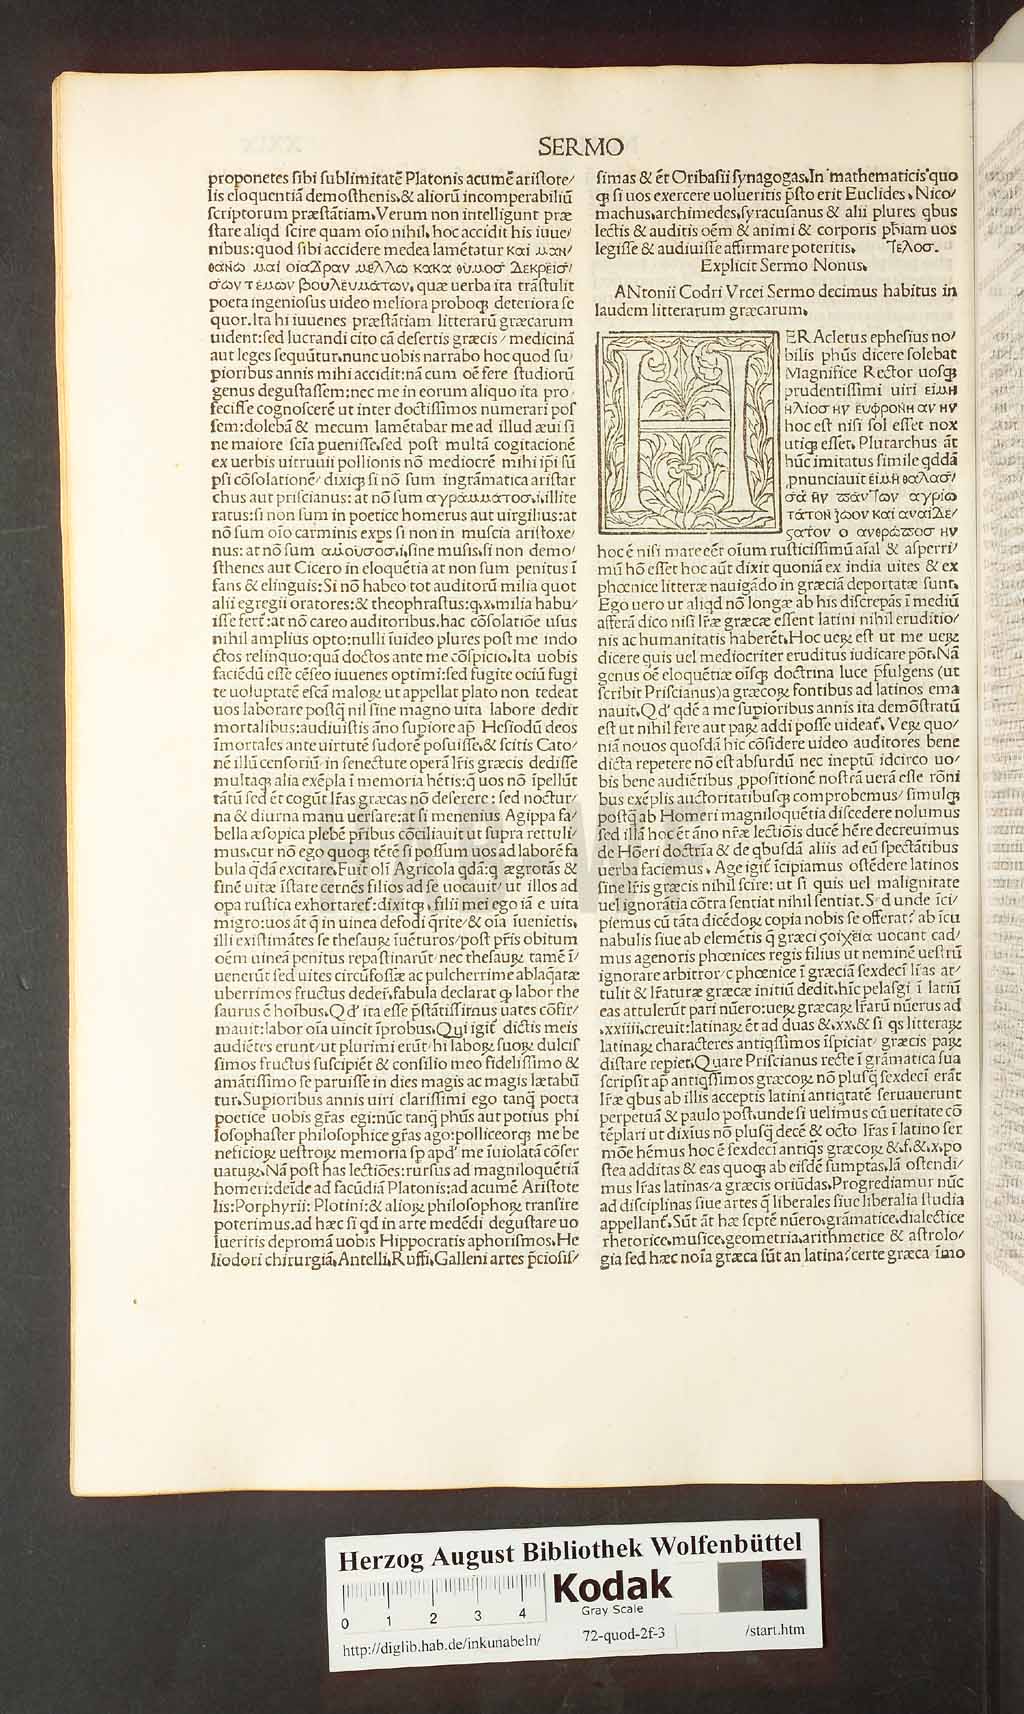 SERMO
proponētes sibi sublimitatē Platonis acumē aristote/
lis eloquentiā demosthenis,& aliorū incomperabiliū
scriptorum præstātiam,Verum non intelligunt præ
stare aliqd scire quam oīo nihil, hoc accidit his iuue/
nibus:quod sibi accidere medea lamētatur και μαν/
θανω μαι οια δραν μελλω κακα θυμοσ δεκρεισ/
σων τ εμων βουλευμάτων, quæ uerba ita trāstulit
poeta ingeniosus uideo meliora proboq; deteriora se
quor.Ita hi iuuenes præstātiam litterarū græcarum
uident:sed lucrandi cito cā desertis græcis / medicinā
aut leges sequūtur,nunc uobis narrabo hoc quod su/
pioribus annis mihi accidit:nā cum oē fere studiorū
genus degustassem:nec me in eorum aliquo ita pro
fecisse cognoscerē ut inter doctissimos numerari pos
sem:dolebā & mecum lamētabar me ad illud æui si
ne maiore scīa puenisse,sed post multā cogitacionē
ex uerbis uitruuii pollionis nō mediocrē mihi ipi sū
psi cōsolationē/ dixiq; si nō sum ingrāmatica aristar
chus aut priscianus: at nō sum αγραμματοσ,i,illite
ratus:si non sum in poetice homerus aut uirgilius:at
nō sum oīo carminis exps si non in muscia aristoxe/
nus: at nō sum αμουσοσ,i,sine musis,si non demo/
sthenes aut Cicero in eloquētia at non sum penitus ī
fans & elinguis:Si nō habeo tot auditorū milia quot
alii egregii oratores:& theophrastus:q,x,milia habu/
isse fert:at nō careo auditoribus,hac cōsolatiōe usus
nihil amplius opto:nulli īuideo plures post me indo
ctos relinquo:quā doctos ante me cōspicio,Ita uobis
faciēdū esse cēseo iuuenes optimi:sed fugite ociū fugi
te uoluptatē escā maloꝝ ut appellat plato non tedeat
uos laborare postq̄ nil sine magno uita labore dedit
mortalibus:audiuistis āno supiore ap̄ Hesiodū deos
īmortales ante uirtutē sudorē posuisse,& scitis Cato/
nē illū censoriū in senectute operā lr̄is græcis dedisse
multaq; alia exēpla ī memoria hētis:q̄ uos nō īpellūt
tātū sed ēt cogūt lr̄as græcas nō deserere: sed noctur/
na & diurna manu uersare:at si menenius Agippa fa/
bella æsopica plebē pribus cōciliauit ut supra rettuli/
mus,cur nō ego quoq; tētē si possum uos ad laborē fa
bula q̄dā excitare,Fuit olī Agricola q̄dā:q̄ ægrotās &
finē uitæ īstare cernēs filios ad se uocauit/ ut illos ad
opa rustica exhortaret:dixitq; , filii mei ego iā e uita
migro:uos āt q̄ in uinea defodi q̄rite/& oīa iuenietis,
illi existimātes se thesauꝝ īuēturos/post pr̄is obitum
oēm uineā penitus repastinarūt/nec thesauꝝ tamē ī/
uenerūt sed uites circūfossæ ac pulcherrime ablaq̄atæ
uberrimos fructus dedert,fabula declarat q; labor the
saurus ē hoībus,Qd' ita esse p̄stātissimus uates cōfir/
mauit:labor oīa uincit īprobus,Qui igit̄ dictis meis
audiētes erunt/ut plurimi erūt/hi laboꝝ suoꝝ dulcis
simos fructus suscipiēt & consilio meo fidelissimo &
amātissimo se paruisse in dies magis ac magis lætabū
tur,Supioribus annis uiri clarissimi ego tanq̄ poeta
poetice uobis gr̄as egi:nūc tanq̄ phūs aut potius phi
losophaster philosophice gr̄as ago:polliceorq; me be
neficioꝝ uestroꝝ memoria sp̄ apd' me īuiolatā cōser
uatuꝝ,Nā post has lectiōes:rursus ad magniloquētiā
homeri:deīde ad facūdiā Platonis:ad acumē Aristote
lis:Porphyrii: Plotini:& alioꝝ philosophoꝝ transire
poterimus,ad hæc si qd in arte medēdi degustare uo
lueritis depromā uobis Hippocratis aphorismos,He
liodori chirurgiā,Antelli,Ruffi,Galleni artes p̄ciosis/
simas & ēt Oribasii synagogas,In mathematicis quo
q; si uos exercere uolueritis p̄sto erit Euclides,Nico/
machus,archimedes,syracusanus & alii plures qbus
lectis & auditis oēm & animi & corporis phīam uos
legisse & audiuisse affirmare poteritis, Τελοσ.
Explicit Sermo Nonus,
ANtonii Codri Vrcei Sermo decimus habitus in
laudem litterarum græcarum,
HER Acletus ephesius no/
bilis phūs dicere solebat
Magnifice Rector uosq;
prudentissimi uiri ειμη
ηλιοσ ην ευφρονη αν ην
hoc est nisi sol esset nox
utiq; esset, Plutarchus āt
hūc imitatus simile qddā
pnunciauit ειμη θαλασ/
σα ην παντων αγριω
τάτον ζωον και αναιδε/
ςατον ο ανθρωποσ ην
hoc ē nisi mare eēt oīum rusticissimū aīal & asperri/
mū hō esset hoc aūt dixit quoniā ex india uites & ex
phœnice litteræ nauigādo in græciā deportatæ sunt,
Ego uero ut aliqd nō longæ ab his discrepās ī mediū
afferā dico nisi lr̄æ græcæ essent latini nihil eruditio/
nis ac humanitatis haberēt,Hoc ueꝝ est ut me ueꝝ
dicere quis uel mediocriter eruditus iudicare pōt,Nā
genus oē eloquētiæ oīsq; doctrina luce p̄fulgens (ut
scribit Priscianus)a græcoꝝ fontibus ad latinos ema
nauit,Qd' qdē a me supioribus annis ita demōstratū
est ut nihil fere aut paꝝ addi posse uideat̄, Veꝝ quo/
niā nouos quosdā hic cōsidere uideo auditores bene
dicta repetere nō est absurdū nec ineptū idcirco uo/
bis bene audiētibus ,ppositionē nostrā uerā esse rōni
bus exēplis auctoritatibusq; comprobemus/ simulq;
postq̄ ab Homeri magniloquētia discedere nolumus
sed illā hoc ēt āno nr̄æ lectiōis ducē hēre decreuimus
de Hōeri doctrīa & de qbusdā aliis ad eū spectātibus
uerba faciemus , Age igit̄ īcipiamus ostēdere latinos
sine lr̄is græcis nihil scire: ut si quis uel malignitate
uel ignorātia cōtra sentiat nihil sentiat,S d unde īci/
piemus cū tāta dicēdoꝝ copia nobis se offerat? ab īcu
nabulis siue ab elemētis q̄ græci ςοιχεια uocant cad/
mus agenoris phœnices regis filius ut neminē uestrū
ignorare arbitror/c phœnice ī græciā sexdecī lr̄as at/
tulit & lr̄aturæ græcæ initiū dedit,hīc pelasgi ī latiū
eas attulerūt pari nūero:ueꝝ græcaꝝ lr̄arū nūerus ad
,xxiiii,creuit:latinaꝝ ēt ad duas &,xx,& si qs litteraꝝ
latinaꝝ characteres antiqssimos īspiciat/ græcis paꝝ
distare repiet,Quare Priscianus recte ī grāmatica sua
scripsit ap̄ antiqssimos græcoꝝ nō plusq̄ sexdecī erāt
lr̄æ qbus ab illis acceptis latini antiqtatē seruauerunt
perpetuā & paulo post,unde si uelimus cū ueritate cō
tēplari ut dixius nō plusq̄ decē & octo lr̄as ī latino ser
mōe hēmus hoc ē sexdecī antiq̄s græcoꝝ &,f,&,x,po
stea additas & eas quoq; ab eisdē sumptas,Iā ostendi/
mus lr̄as latinas/a græcis oriūdas,Progrediamur nūc
ad disciplinas siue artes q̄ liberales siue liberalia studia
appellant̄,Sūt āt hæ septē nūero,grāmatice,dialectice
rhetorice,musice,geometria,arithmetice & astrolo/
gia sed hæc noīa græca sūt an latina? certe græca īmo
Herzog August Bibliothek Wolfenbüttel
0 1 2 3 4
Kodak
Gray Scale
http://diglib.hab.de/inkunabeln/
72-quod-2f-3
/start.htm